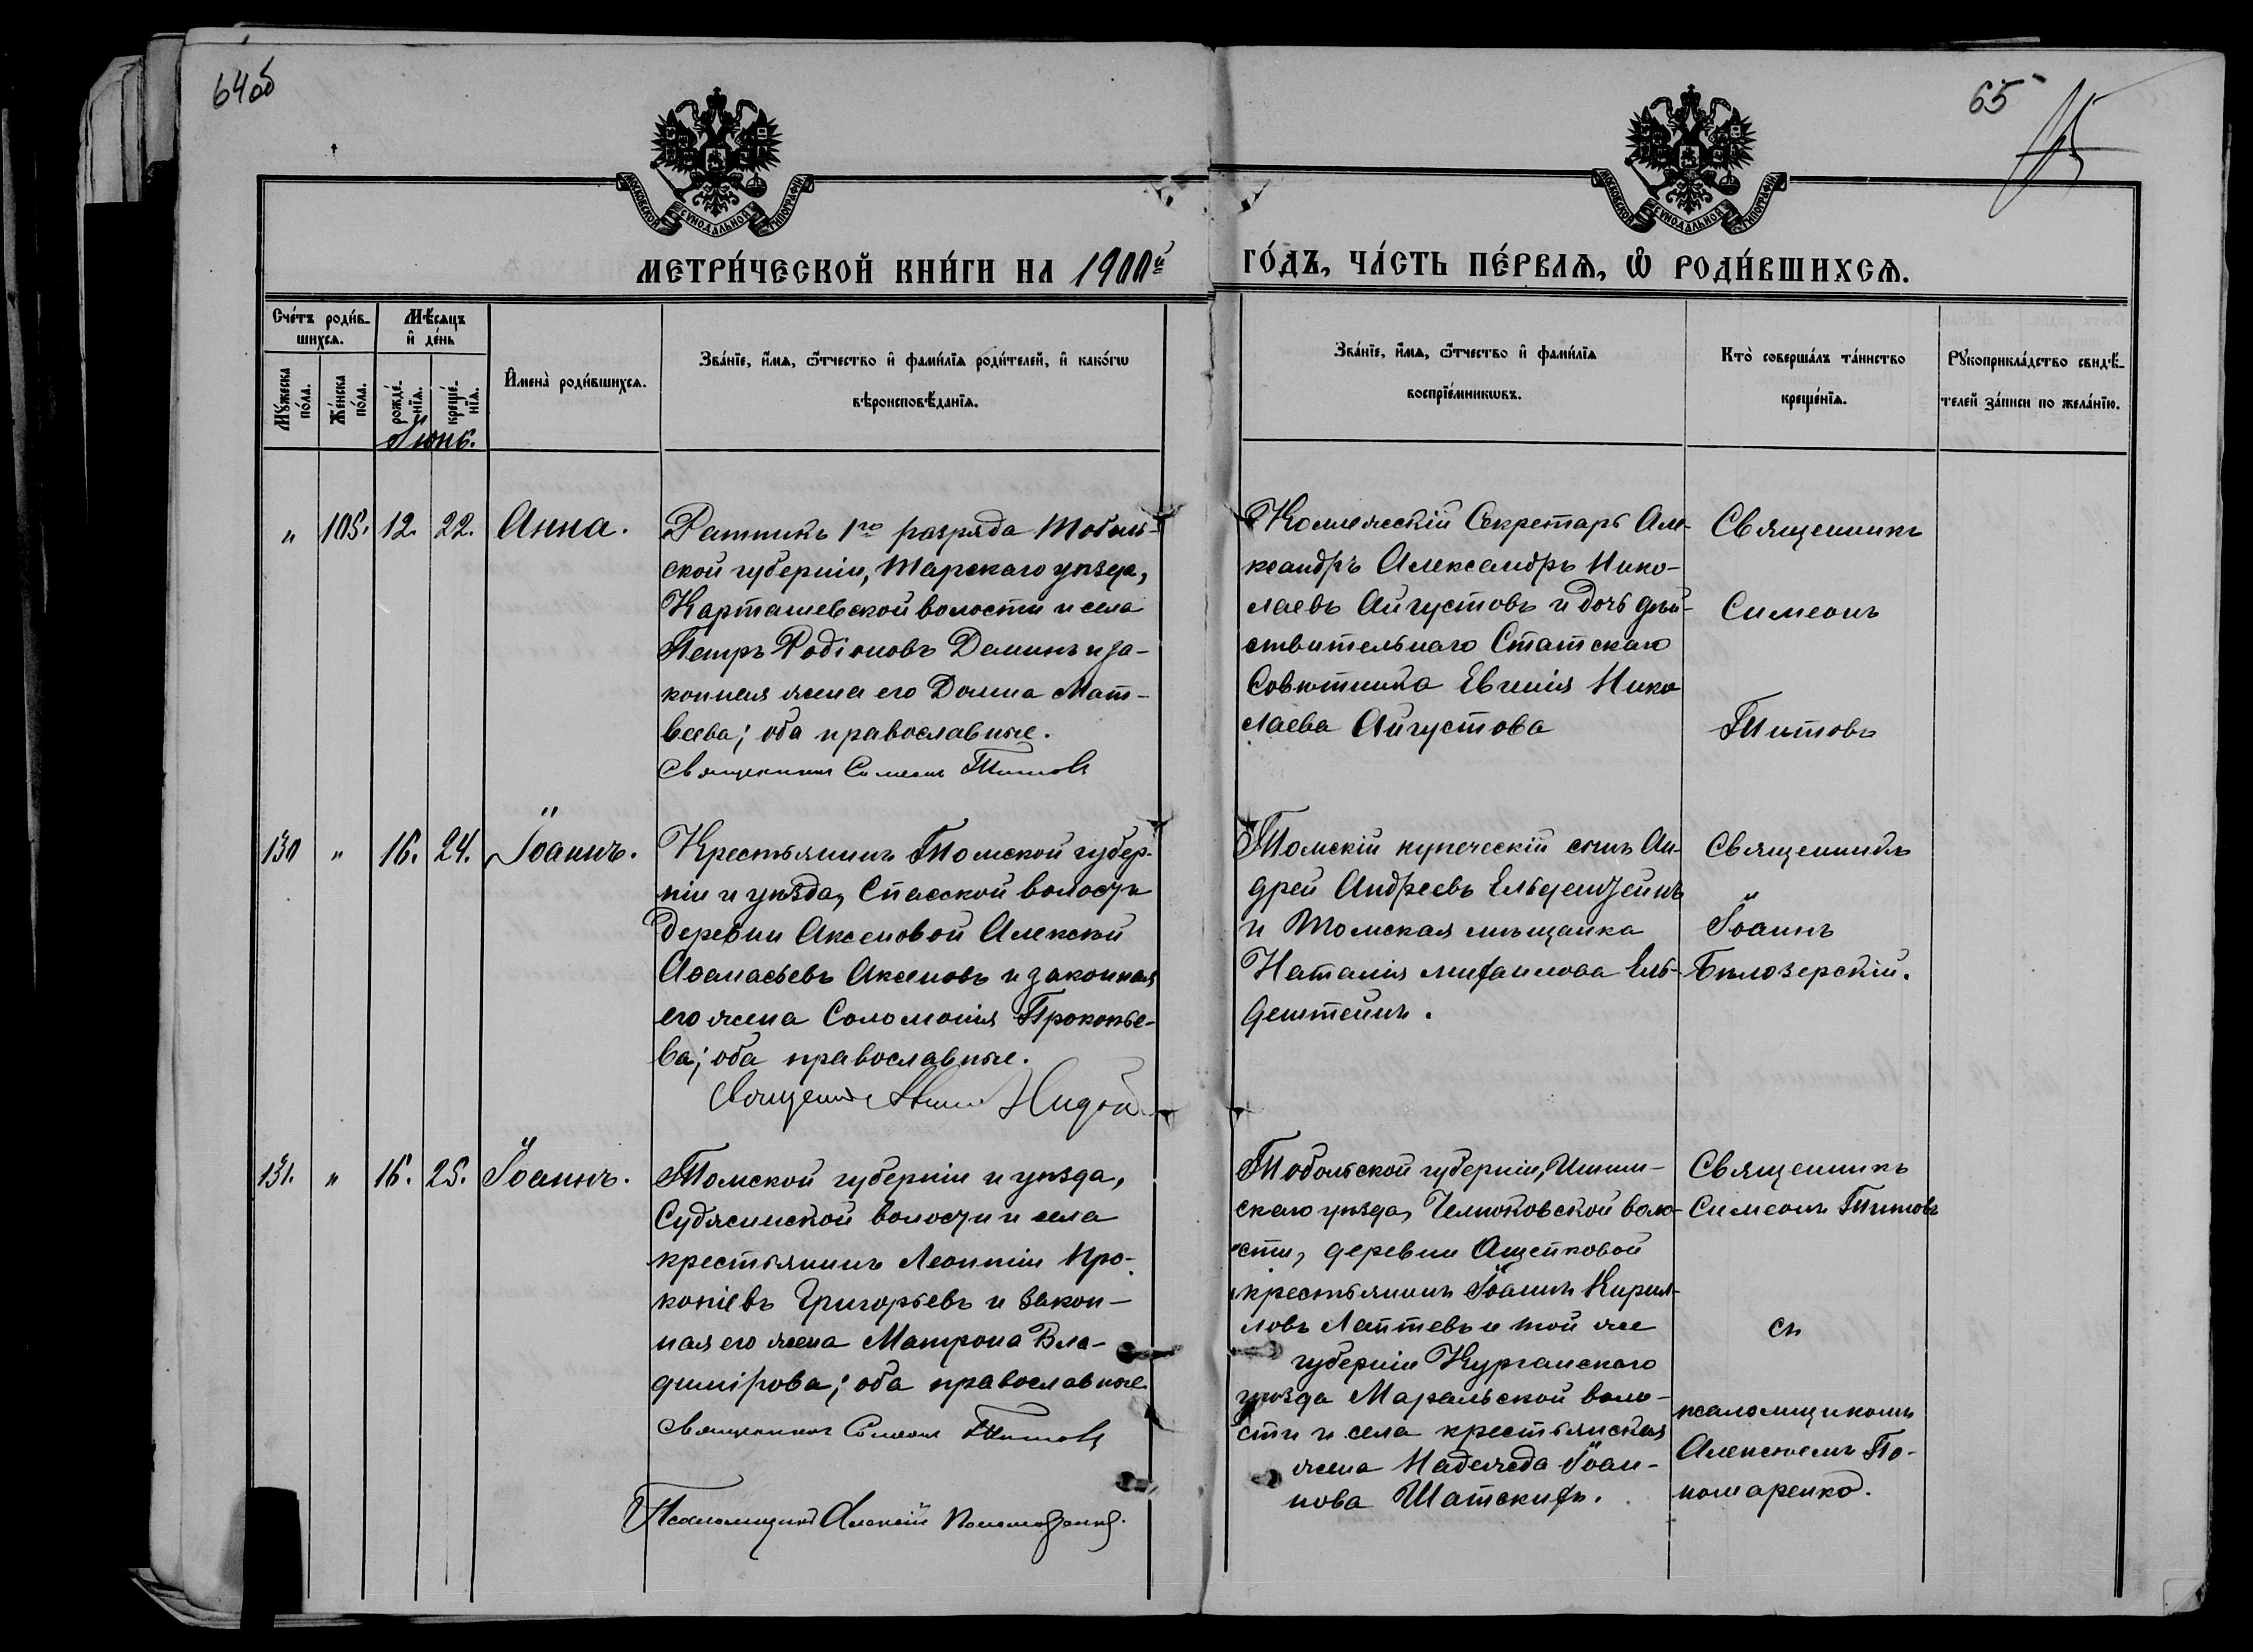 64 об
65
МОСКОВСКОЙ СѴНОДАЛЬНОЙ ТИПОГРАФІИ
МОСКОВСКОЙ СѴНОДАЛЬНОЙ ТИПОГРАФІИ
МЕТРИ́ЧЕСКОЙ КНИ́ГИ НА 1900й ГО́ДЪ, ЧА́СТЬ ПЕ́РВАѦ, Ѡ҆ РОДИ́ВШИХСѦ.
Сче́тъ роди́в-
шихсѧ.
Мꙋ́жеска
по́ла.
Же́нска
по́ла.
Мѣ́сѧцъ
и҆ де́нь
рожде́-
нїѧ.
креще́-
нїѧ.
Іюнь.
И҆мена̀ роди́вшихсѧ.
Зва́нїе, и҆́мѧ, ѻ҆́тчество и҆ фами́лїѧ роди́телей, и҆ како́гѡ
вѣроисповѣ́данїѧ.
Зва́нїе, и҆́мѧ, ѻ҆́тчество и҆ фами́лїѧ
воспрїе́мникѡвъ.
Кто̀ соверша́лъ та́инство
креще́нїѧ.
Рꙋкоприкла́дство свидѣ́-
телей за́писи по жела́нїю.
" 105. 12. 22. Анна.
Ратникъ 1го разряда Тоболь-
ской губерніи, Тарскаго уѣзда,
Карташевской волости и села
Петръ Родіоновъ Деминъ и за-
конная жена его Домна Мат-
веева; оба православные.
Священникъ Симеонъ Титовъ
Коллежскій Секретарь Але-
ксандръ Александръ Нико-
лаевъ Августовъ и дочь дѣй-
ствительнаго Статскаго
Совѣтника Евгенія Нико
лаева Августова
Священникъ
Симеонъ
Титовъ
130 " 16. 24. Іоаннъ.
Крестьянинъ Томской губер-
ніи и уѣзда, Спасской волости
деревни Аксеновой Алексѣй
Аѳанасьевъ Аксеновъ и законная
его жена Соломонія Прокопье-
ва; оба православные.
Томскій купеческій сынъ Ан-
дрей Андреевъ Ельденштейнъ
и Томская мѣщанка
Наталія Михаилова Ель-
денштейнъ.
Священникъ
Іоаннъ
Бѣлозерскій.
131. " 16. 25. Іоаннъ.
Томской губерніи и уѣзда,
Судженской волости и села
крестьянинъ Леонтій Про-
копіевъ Григорьевъ и закон-
ная его жена Матрона Вла-
димірова; оба православные
Священникъ Симеонъ Титовъ
Псаломщикъ Алексій Пономаренко.
Тобольской губерніи, Ишим-
скаго уѣзда, Челноковской воло-
сти, деревни Ощепковой
крестьянинъ Іоаннъ Кирил-
ловъ Лаптевъ и той же
губерніи Курганскаго
уѣзда Маральской воло-
сти и села крестьянская
жена Надежда Іоан-
нова Шатскихъ.
Священникъ
Симеонъ Титовъ
съ
псаломщикомъ
Алексѣемъ По-
номаренко.